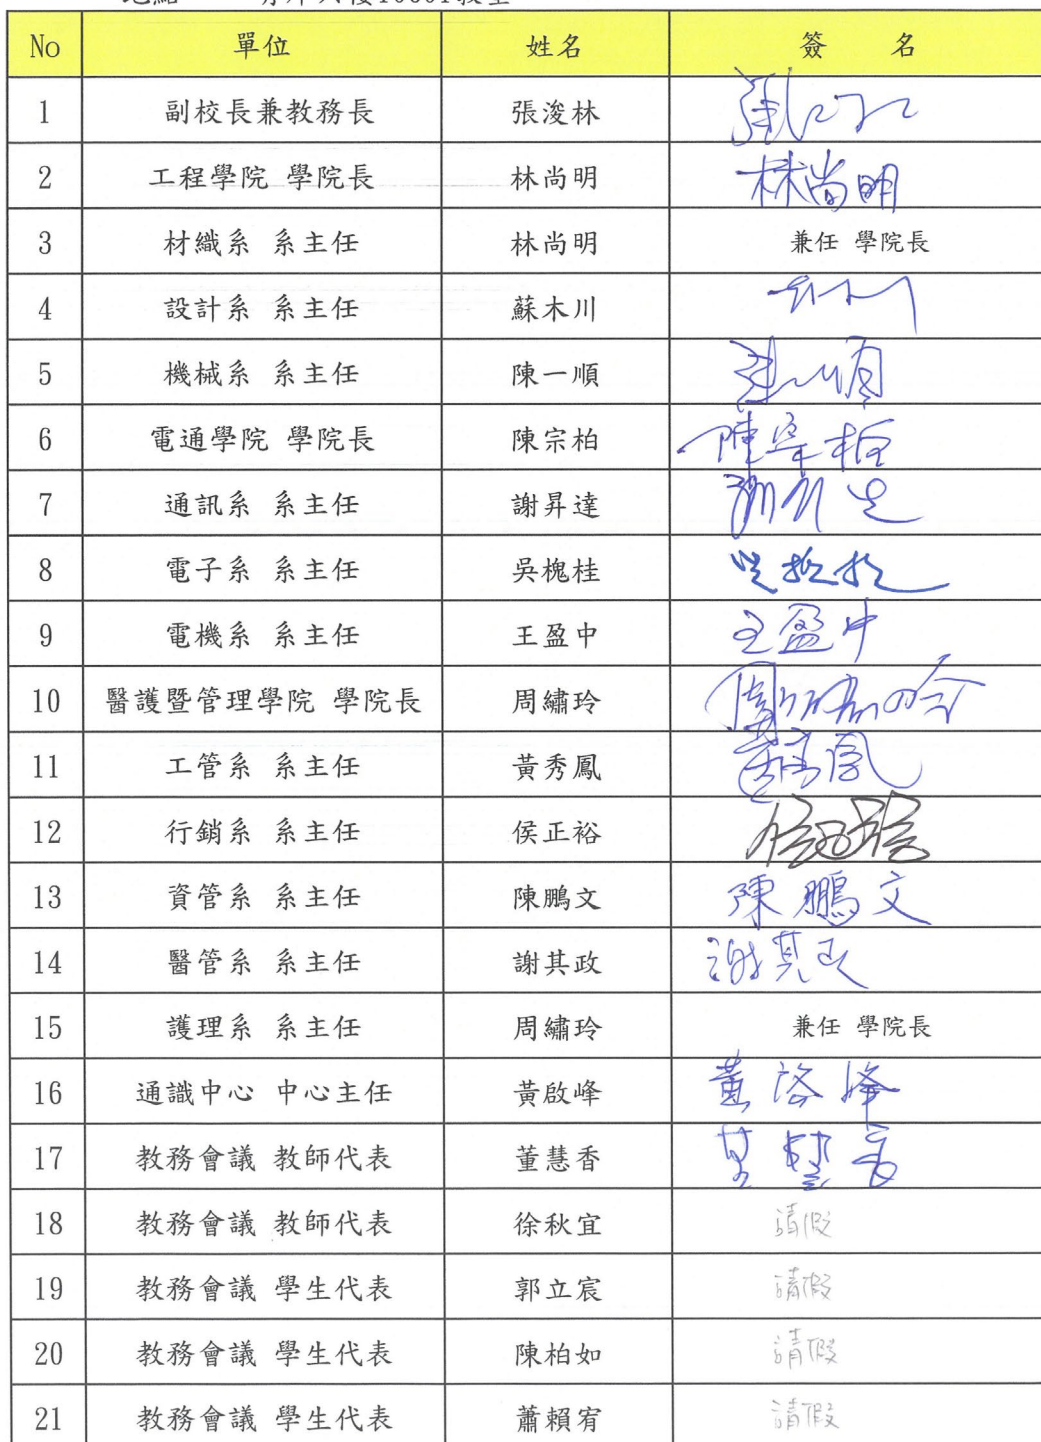 No 單位 姓名 簽 名
1 副校長兼教務長 張浚林
2 工程學院 學院長 林尚明 林尚明
3 材織系 系主任 林尚明 兼任 學院長
4 設計系 系主任 蘇木川
5 機械系 系主任 陳一順
6 電通學院 學院長 陳宗柏 陳宗柏
7 通訊系 系主任 謝昇達
8 電子系 系主任 吳槐桂
9 電機系 系主任 王盈中 王盈中
10 醫護暨管理學院 學院長 周繡玲
11 工管系 系主任 黃秀鳳 黃秀鳳
12 行銷系 系主任 侯正裕
13 資管系 系主任 陳鵬文 陳鵬文
14 醫管系 系主任 謝其政 謝其政
15 護理系 系主任 周繡玲 兼任 學院長
16 通識中心 中心主任 黃啟峰 黃啟峰
17 教務會議 教師代表 董慧香 董慧香
18 教務會議 教師代表 徐秋宜 請假
19 教務會議 學生代表 郭立宸 請假
20 教務會議 學生代表 陳柏如 請假
21 教務會議 學生代表 蕭賴宥 請假